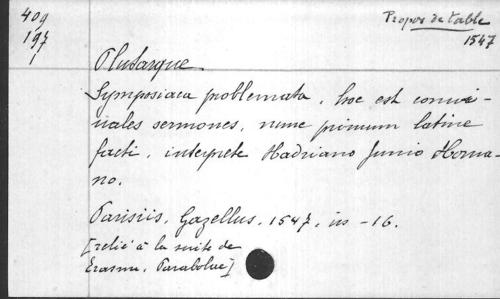 409
197
1
Propos de table
1547
Plutarque
Symposiaca problemata, hoc est convi-
vales sermones, nunc primum latine
facti, interprete Hadriano Junio Horna-
no.
Parisiis, Gazellus, 1547, in-16.
[relié à la suite de
Erasme, Parabolae]